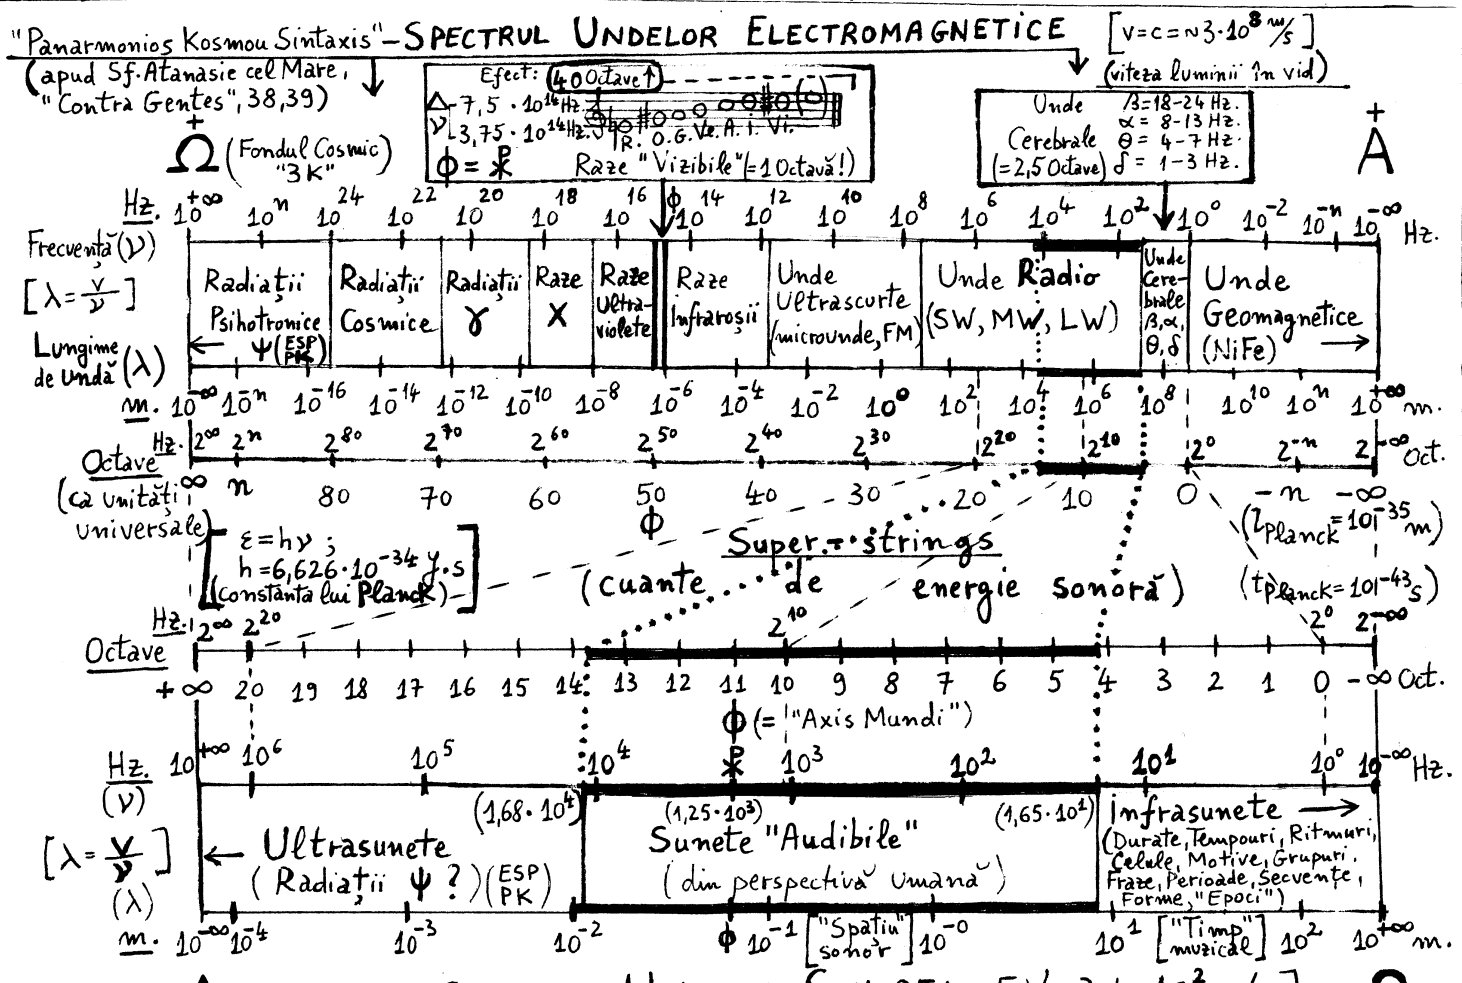 "Panarmonios Kosmou Sintaxis" – SPECTRUL UNDELOR ELECTROMAGNETICE [v=c=~3·10⁸ m/s]
(apud Sf. Atanasie cel Mare,
"Contra Gentes", 38,39)
(viteza luminii în vid)
Efect: 40 Octave↑
7,5 · 10¹⁴ Hz.
ν
3,75 · 10¹⁴ Hz.
R. O. G. Ve. A. I. Vi.
Φ = Raze "Vizibile" (=1 Octavă!)
Unde
Cerebrale
(=2,5 Octave)
β=18-24 Hz.
α= 8-13 Hz.
θ= 4-7 Hz.
δ= 1-3 Hz.
+
Ω (Fondul Cosmic
"3K"
+
A
Hz. 10⁺∞ 10ⁿ 10²⁴ 10²² 10²⁰ 10¹⁸ 10¹⁶ Φ 10¹⁴ 10¹² 10¹⁰ 10⁸ 10⁶ 10⁴ 10² 10⁰ 10⁻² 10⁻ⁿ 10⁻∞ Hz.
Frecvență (ν)
[λ = v/ν]
Lungime
de undă (λ)
Radiații
Psihotronice
← Ψ (ESP
PK)
Radiații
Cosmice
Radiații
γ
Raze
X
Raze
Ultra-
violete
Raze
Infraroșii
Unde
Ultrascurte
(microunde, FM)
Unde Radio
(SW, MW, LW)
Unde
Cere-
brale
β, α,
θ, δ
Unde
Geomagnetice
(NiFe) →
m. 10⁻∞ 10⁻ⁿ 10⁻¹⁶ 10⁻¹⁴ 10⁻¹² 10⁻¹⁰ 10⁻⁸ 10⁻⁶ 10⁻⁴ 10⁻² 10⁰ 10² 10⁴ 10⁶ 10⁸ 10¹⁰ 10ⁿ 10⁺∞ m.
Hz. 2∞ 2ⁿ 2⁸⁰ 2⁷⁰ 2⁶⁰ 2⁵⁰ 2⁴⁰ 2³⁰ 2²⁰ 2¹⁰ 2⁰ 2⁻ⁿ 2⁻∞ Oct.
Octave
(ca unități
universale)
∞ n 80 70 60 50 40 30 20 10 0 -n -∞
Φ
[ε=hν;
h=6,626·10⁻³⁴ J·s
(constanta lui Planck)]
Super-strings
(cuante de energie sonoră)
(lPlanck=10⁻³⁵ m)
(tPlanck=10⁻⁴³ s)
Hz. 2∞ 2²⁰ 2¹⁰ 2⁰ 2⁻∞
Octave
+∞ 20 19 18 17 16 15 14 13 12 11 10 9 8 7 6 5 4 3 2 1 0 -∞ Oct.
Φ (= "Axis Mundi")
Hz. 10⁺∞ 10⁶ 10⁵ 10⁴ 10³ 10² 10¹ 10⁰ 10⁻∞ Hz.
(ν)
[λ = v/ν]
(λ)
(1,68·10⁴)
← Ultrasunete
(Radiații Ψ ?) (ESP
PK)
(1,25·10³)
(1,65·10¹)
Sunete "Audibile"
(din perspectivă umană)
Infrasunete →
(Durate, Tempouri, Ritmuri,
Celule, Motive, Grupuri,
Fraze, Perioade, Secvențe,
Forme, "Epoci")
m. 10⁻∞ 10⁻⁴ 10⁻³ 10⁻² Φ 10⁻¹ ["Spațiu"
sonor] 10⁻⁰ 10¹ ["Timp"
muzical] 10² 10⁺∞ m.